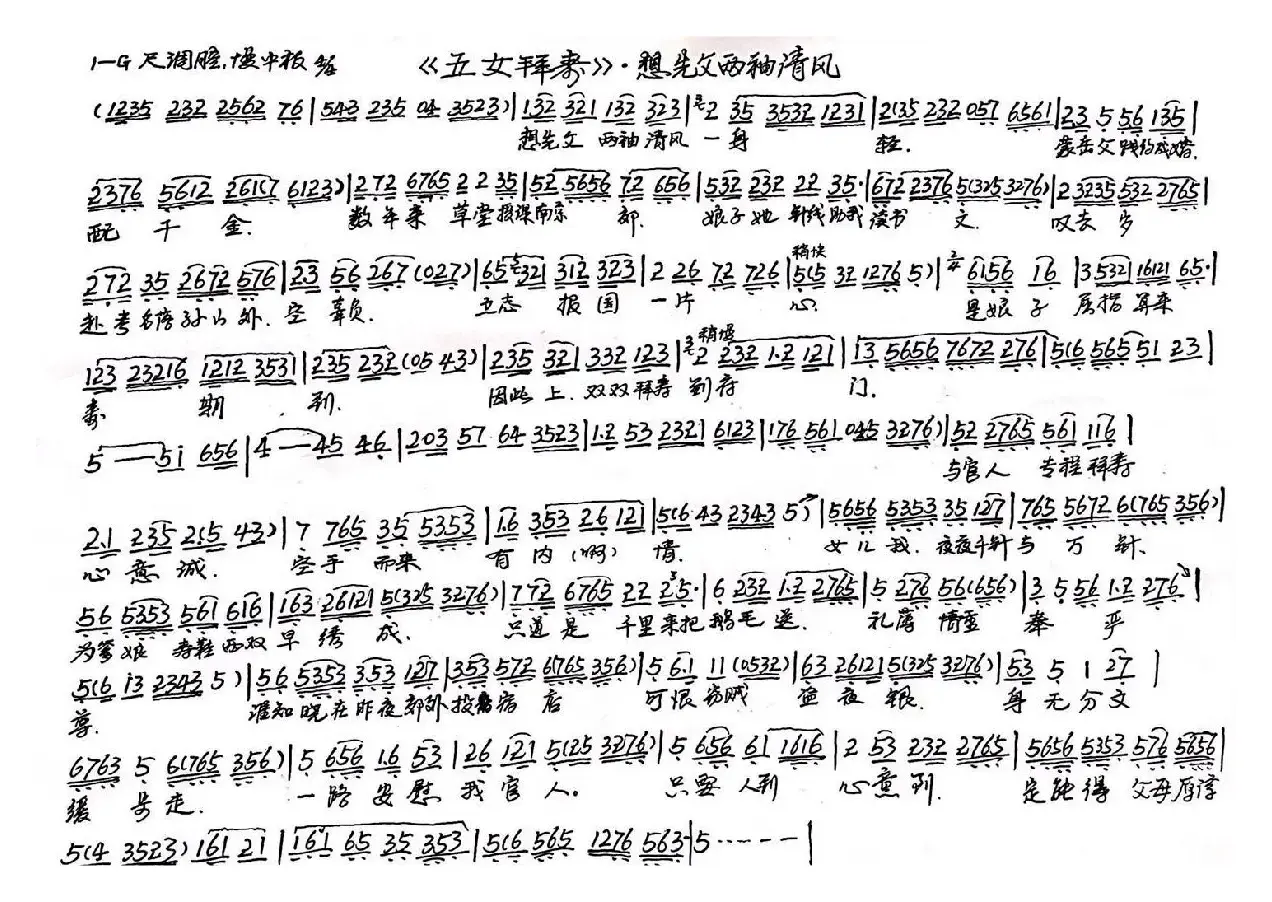 1=G 尺调腔.慢中板 《五女拜寿》·想先父两袖清风
(1235 232 2562 76 | 543 235 04 3523) | 1.32 321 132 323 | 2 35 3532 1231 | 2(35 232 057 6561 | 23 5 56 135 |
想先父 两袖清风 一身 轻. 蒙岳父践约成婚.
2376 5612 261(7 6123) | 272 6765 2 2 35 | 52 5656 72 656 | 532 232 22 35· | 672 2376 5(325 3276) | 2 3235 532 2765 |
配 千 金. 数年来 草堂攻读 郊. 娘子她 针线助我 读书 文. 叹去 岁
272 35 2672 576 | 23 56 267 (027) | 65 321 312 323 | 2 26 72 726 | 稍快 5(5 32 1276 5) | 6156 16 | 3532 16121 65· |
赴考名落孙山外. 空 辜负. 立志 报国 一片 心. 是娘子 屈指算来
123 23216 1212 3531 | 235 232 (05 43) | 235 321 332 123 | 稍慢 2 232 1.2 121 | 13 5656 7672 276 | 5(6 565 51 23 |
寿 期 到. 因此上. 双双拜寿 到府 门.
5 — 5i 656 | 4 — 45 46 | 203 57 64 3523 | 1.2 53 2321 6123 | 176 561 045 3276) | 52 2765 561 116 |
与官人 专程拜寿
2.1 235 2(5 43) | 7 765 35 5353 | 1.6 353 26 121 | 5(6 43 2343 5) | 5656 5353 35 127 | 765 5672 6(765 356) |
心意诚. 空手 而来 有内(啊) 情. 女儿我. 夜夜千针与 万 针.
56 5353 561 616 | 163 26121 5(325 3276) | 772 6765 22 25· | 6 232 1.2 2765 | 5 276 56(656) | 3 5 56 1.2 276 |
为爹娘 寿鞋两双 早绣 成. 只道是 千里来把鹅毛送. 礼薄 情重 奉 严
5(6 13 2343 5) | 56 5353 353 127 | 353 572 6765 356) | 5 6.1 11 (0532) | 63 26121 5(325 3276) | 53 5 1 27 |
尊. 谁知晓在昨夜郊外投宿 店 可恨窃贼 盗夜 银. 身无分文
6763 5 6(765 356) | 5 656 1.6 53 | 26 121 5(25 3276) | 5 656 61 1616 | 2 53 232 2765 | 5656 5353 576 5656 |
缓 步 走. 一路安慰 我官 人。 只要 人到 心意 到. 定能得 父母厚谅
5(4 3523) 161 21 | 161 65 35 353 | 5(6 565 1276 563· | 5 ······ — |